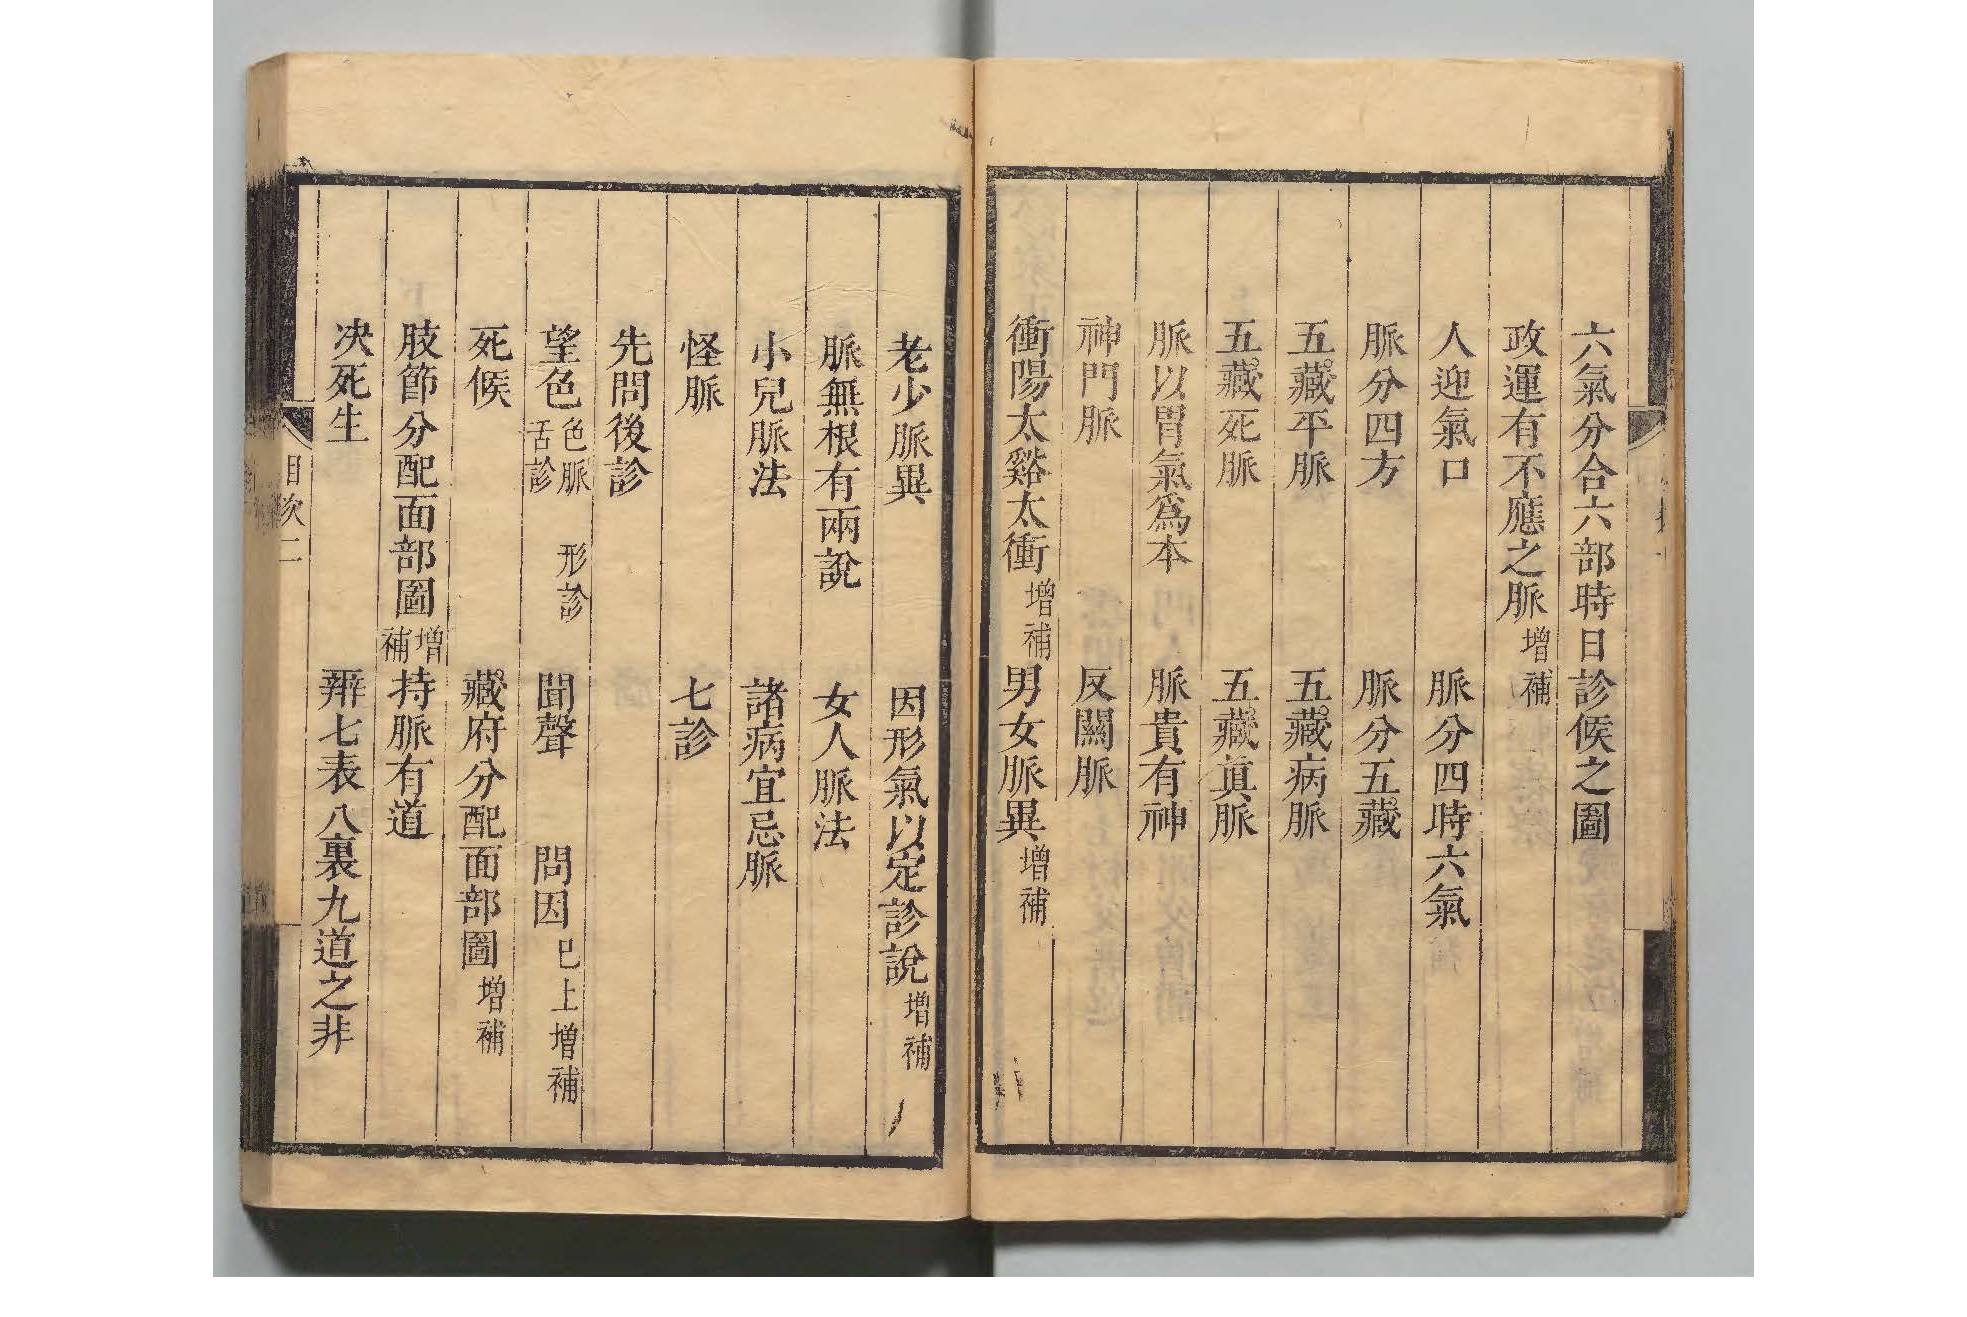 六氣分合六部時日診候之圖
政運有不應之脈增補
人迎氣口　脈分四時六氣
脈分四方　脈分五藏
五藏平脈　五藏病脈
五藏死脈　五藏眞脈
脈以胃氣爲本　脈貴有神
神門脈　反關脈
衝陽太谿太衝增補　男女脈異增補
老少脈異　因形氣以定診說增補
脈無根有兩說　女人脈法
小兒脈法　諸病宜忌脈
怪脈　七診
先問後診
望色色脈舌診　形診　聞聲　問因已上增補
死候　藏府分配面部圖增補
肢節分配面部圖增補　持脈有道
决死生　辨七表八裏九道之非
目次二